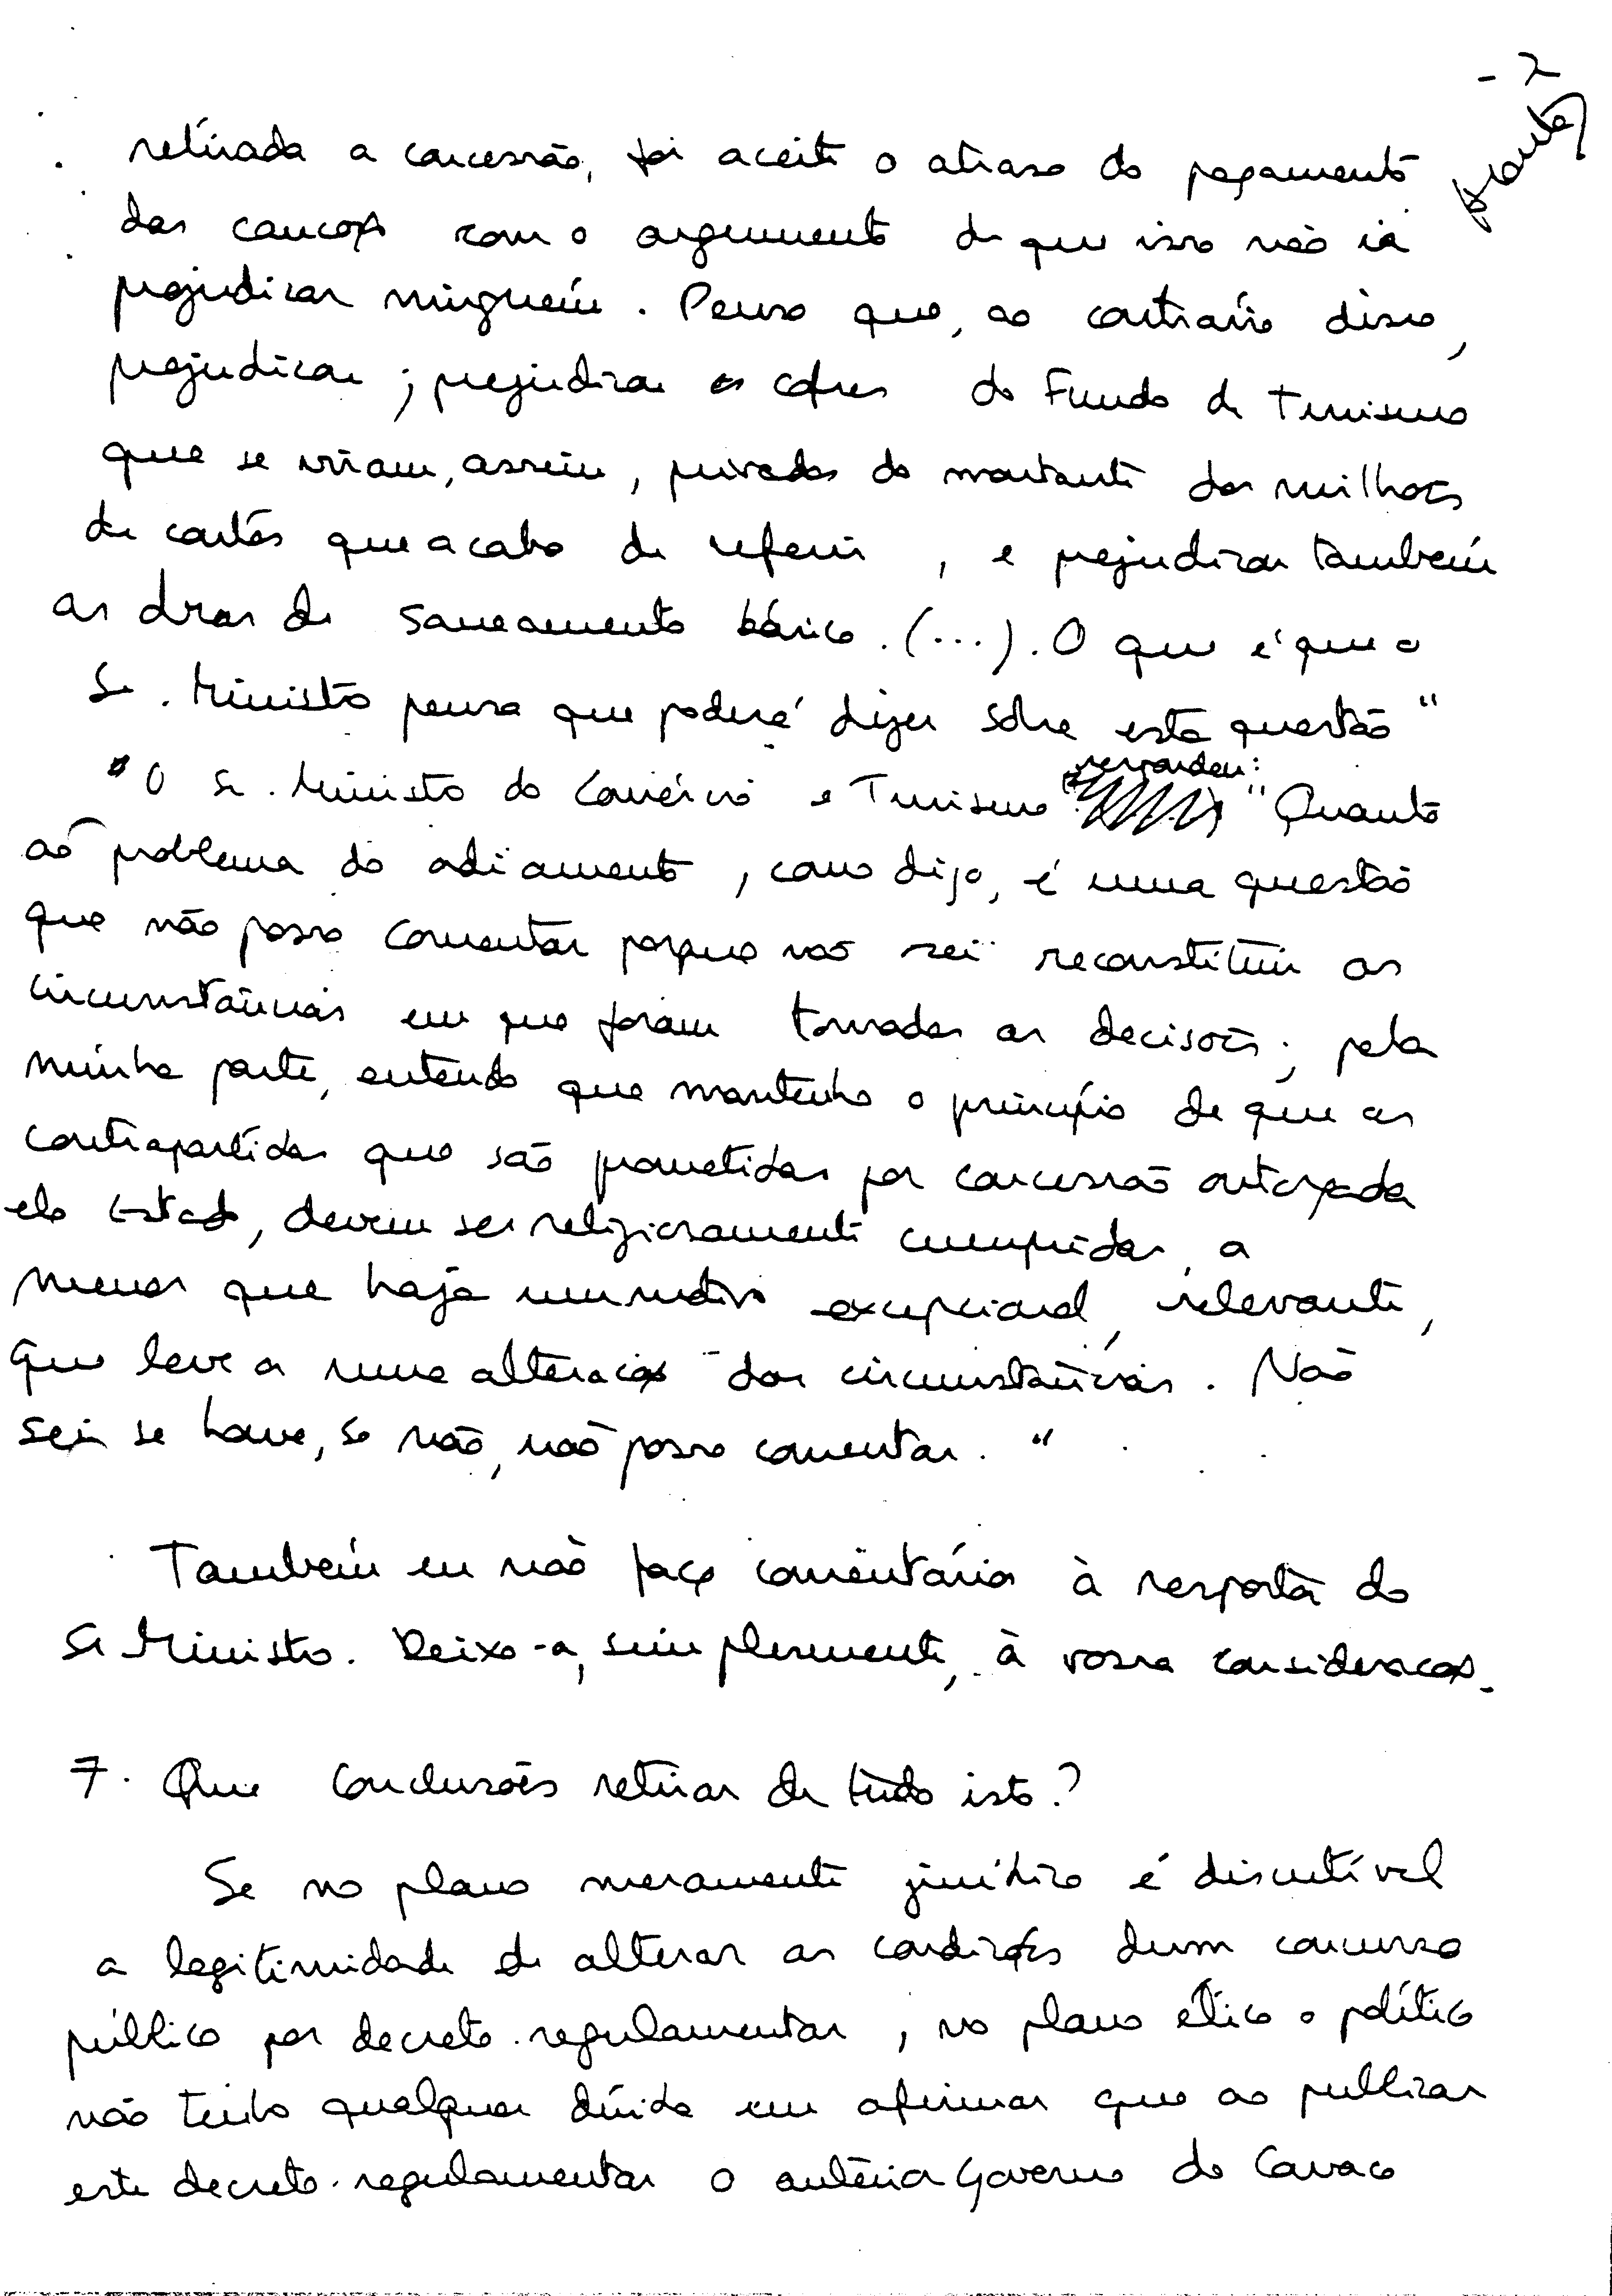 - 2
retirada a concessão, foi aceite o atraso do pagamento
das cauções com o argumento de que isso não ia
prejudicar ninguém. Penso que, ao contrário disso,
prejudicar; prejudicar os cofres do Fundo de Turismo
que se viam, assim, privados do montante dos milhões
de contos que acabo de referir, e prejudicar também
as obras de saneamento básico. (...). O que é que o
Sr. Ministro pensa que poderá dizer sobre esta questão"
"O Sr. Ministro do Comércio e Turismo respondeu: "Quanto
ao problema do adiamento, como digo, é uma questão
que não posso comentar porque não sei reconstituir as
circunstâncias em que foram tomadas as decisões; pela
minha parte, entendo que mantenho o princípio de que as
contrapartidas que são prometidas por concessão outorgada
elo Estado, devem ser religiosamente cumpridas, a
menos que haja um motivo excepcional, relevante,
que leve a uma alteração das circunstâncias. Não
sei se houve, se não, não posso comentar."
Também eu não faço comentários à resposta do
Sr Ministro. Deixo-a, simplesmente, à vossa consideração.
7. Que conclusões retirar de tudo isto?
Se no plano meramente jurídico é discutível
a legitimidade de alterar as condições dum concurso
público por decreto-regulamentar, no plano ético e político
não tenho qualquer dúvida em afirmar que ao publicar
este decreto-regulamentar o anterior Governo do Cavaco